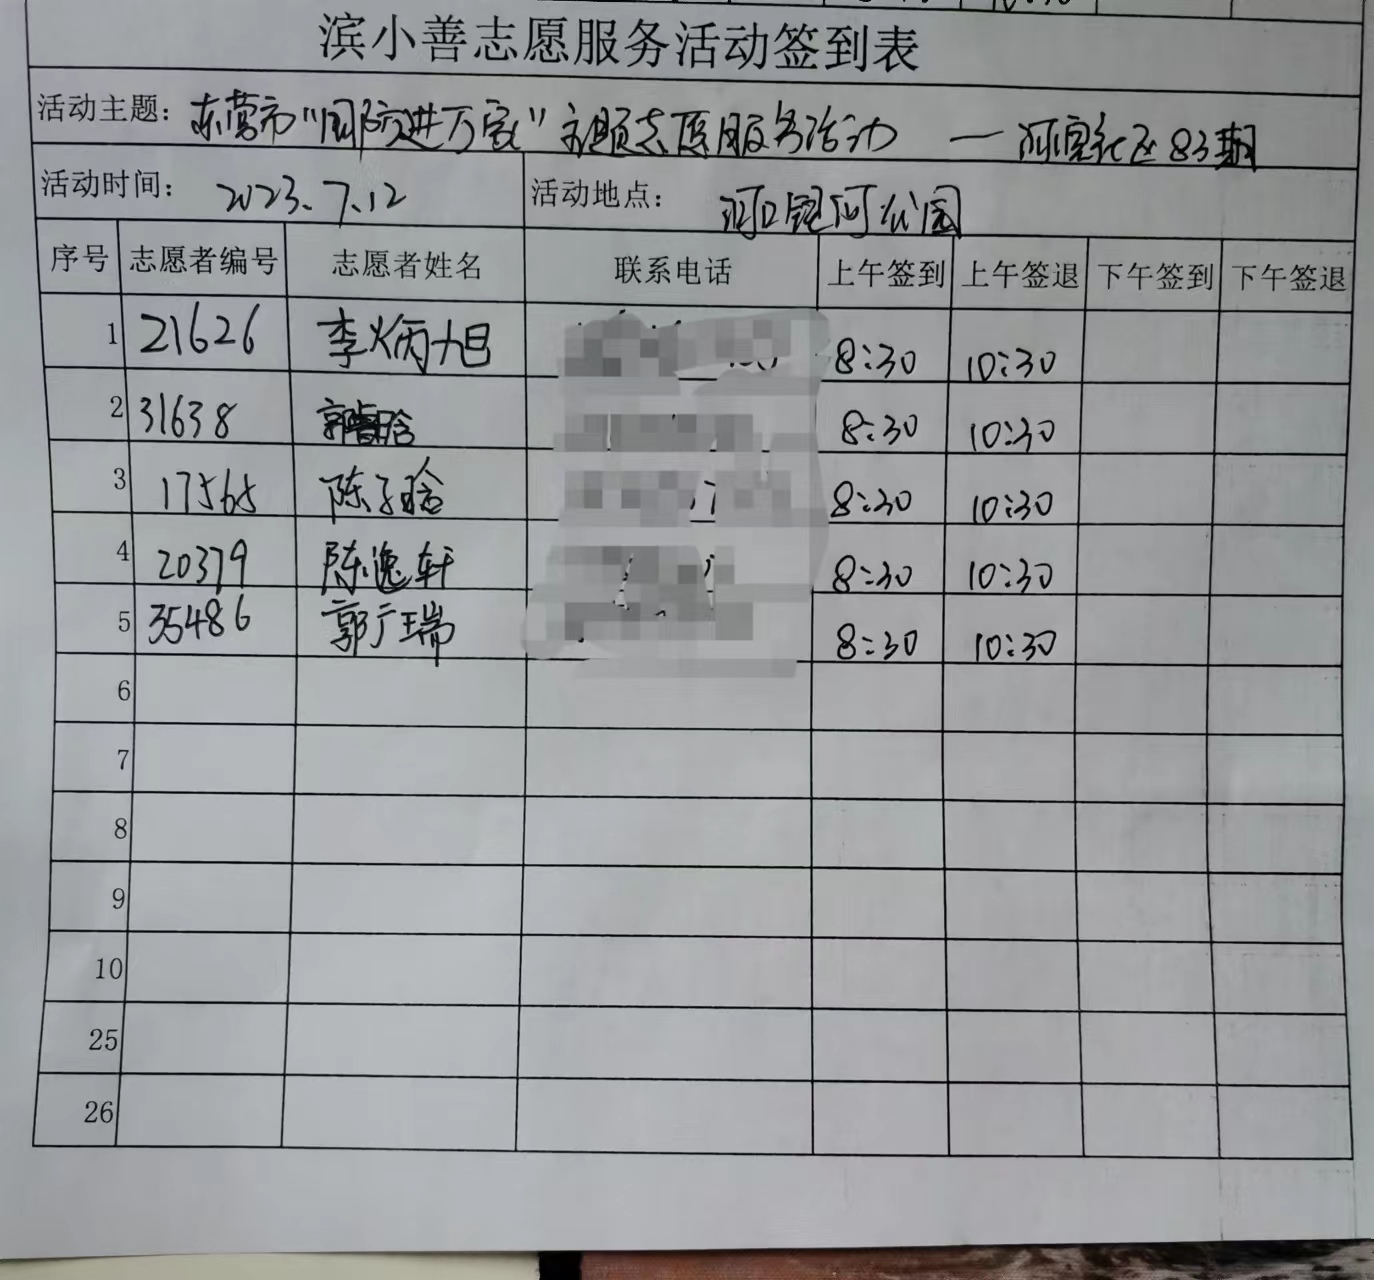 滨小善志愿服务活动签到表
活动主题：东营市“国防进万家”主题志愿服务活动 — 河宁社区83期
活动时间： 2023.7.12 活动地点： 河口银河公园
序号 志愿者编号 志愿者姓名 联系电话 上午签到 上午签退 下午签到 下午签退
1 21626 李炳旭 8:30 10:30
2 31638 郭晗 8:30 10:30
3 17565 陈子晗 8:30 10:30
4 20379 陈逸轩 8:30 10:30
5 35486 郭广瑞 8:30 10:30
6
7
8
9
10
25
26